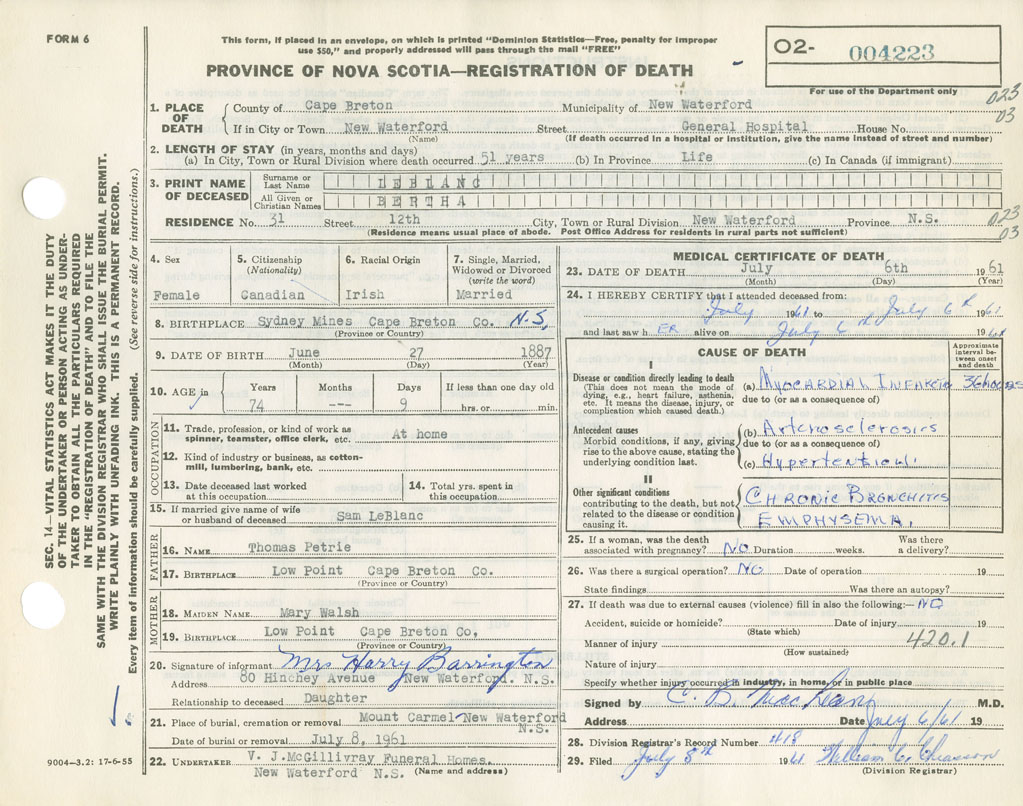 FORM 6
This form, if placed in an envelope, on which is printed "Dominion Statistics—Free, penalty for improper
use $50," and properly addressed will pass through the mail "FREE"
PROVINCE OF NOVA SCOTIA—REGISTRATION OF DEATH
O2- 004223
For use of the Department only
023
03
SEC. 14—VITAL STATISTICS ACT MAKES IT THE DUTY
OF THE UNDERTAKER OR PERSON ACTING AS UNDER-
TAKER TO OBTAIN ALL THE PARTICULARS REQUIRED
IN THE "REGISTRATION OF DEATH" AND TO FILE THE
SAME WITH THE DIVISION REGISTRAR WHO SHALL ISSUE THE BURIAL PERMIT.
WRITE PLAINLY WITH UNFADING INK. THIS IS A PERMANENT RECORD.
Every item of information should be carefully supplied. (See reverse side for instructions.)
1. PLACE OF DEATH
County of Cape Breton Municipality of New Waterford
If in City or Town New Waterford Street General Hospital House No.
(Name) (If death occurred in a hospital or institution, give the name instead of street and number)
2. LENGTH OF STAY (in years, months and days)
(a) In City, Town or Rural Division where death occurred 51 years (b) In Province Life (c) In Canada (if immigrant)
3. PRINT NAME OF DECEASED
Surname or Last Name LEBLANC
All Given or Christian Names BERTHA
RESIDENCE No. 31 Street 12th City, Town or Rural Division New Waterford Province N.S.
(Residence means usual place of abode. Post Office Address for residents in rural parts not sufficient)
023
03
4. Sex
Female
5. Citizenship
(Nationality)
Canadian
6. Racial Origin
Irish
7. Single, Married,
Widowed or Divorced
(write the word)
Married
8. BIRTHPLACE Sydney Mines Cape Breton Co. N.S,
(Province or Country)
9. DATE OF BIRTH June 27 1887
(Month) (Day) (Year)
10. AGE in
Years Months Days If less than one day old
74 --- 9 hrs. or min.
OCCUPATION
11. Trade, profession, or kind of work as
spinner, teamster, office clerk, etc. At home
12. Kind of industry or business, as cotton-
mill, lumbering, bank, etc.
13. Date deceased last worked
at this occupation
14. Total yrs. spent in
this occupation
15. If married give name of wife
or husband of deceased Sam LeBlanc
FATHER
16. NAME Thomas Petrie
17. BIRTHPLACE Low Point Cape Breton Co.
(Province or Country)
MOTHER
18. MAIDEN NAME Mary Walsh
19. BIRTHPLACE Low Point Cape Breton Co,
(Province or Country)
20. Signature of informant Mrs Harry Barrington
Address 80 Hinchey Avenue New Waterford. N.S.
Relationship to deceased Daughter
21. Place of burial, cremation or removal Mount Carmel-New Waterford
N.S.
Date of burial or removal July 8, 1961
22. UNDERTAKER V. J.McGillivray Funeral Homes.
New Waterford N.S. (Name and address)
9004—3.2: 17-6-55
MEDICAL CERTIFICATE OF DEATH
23. DATE OF DEATH July 6th 1961
(Month) (Day) (Year)
24. I HEREBY CERTIFY that I attended deceased from:
July 1961 to July 6th 1961
and last saw h ER alive on July 6th 1961
CAUSE OF DEATH
Approximate
interval be-
tween onset
and death
I
Disease or condition directly leading to death
(This does not mean the mode of
dying, e.g., heart failure, asthenia,
etc. It means the disease, injury, or
complication which caused death.)
(a) Myocardial Infarctio 36 hours
due to (or as a consequence of)
Antecedent causes
Morbid conditions, if any, giving
rise to the above cause, stating the
underlying condition last.
(b) Arterosclerosis
due to (or as a consequence of)
(c)
II
Other significant conditions
contributing to the death, but not
related to the disease or condition
causing it.
Chronic Bronchitis
Emphysema,
25. If a woman, was the death
associated with pregnancy? No Duration weeks.
Was there
a delivery?
26. Was there a surgical operation? NO Date of operation 19
State findings Was there an autopsy?
27. If death was due to external causes (violence) fill in also the following:— NO
Accident, suicide or homicide? Date of injury 19
(State which)
Manner of injury 420.1
(How sustained)
Nature of injury
Specify whether injury occurred in industry, in home, or in public place
Signed by M.D.
Address Date July 6/61 19
28. Division Registrar's Record Number #18
29. Filed July 8th 1961 William C. Chiasson
(Division Registrar)